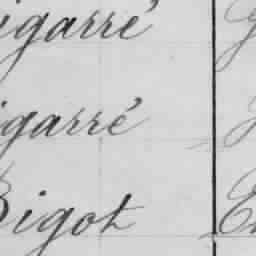 igarré
igarré
Bigot